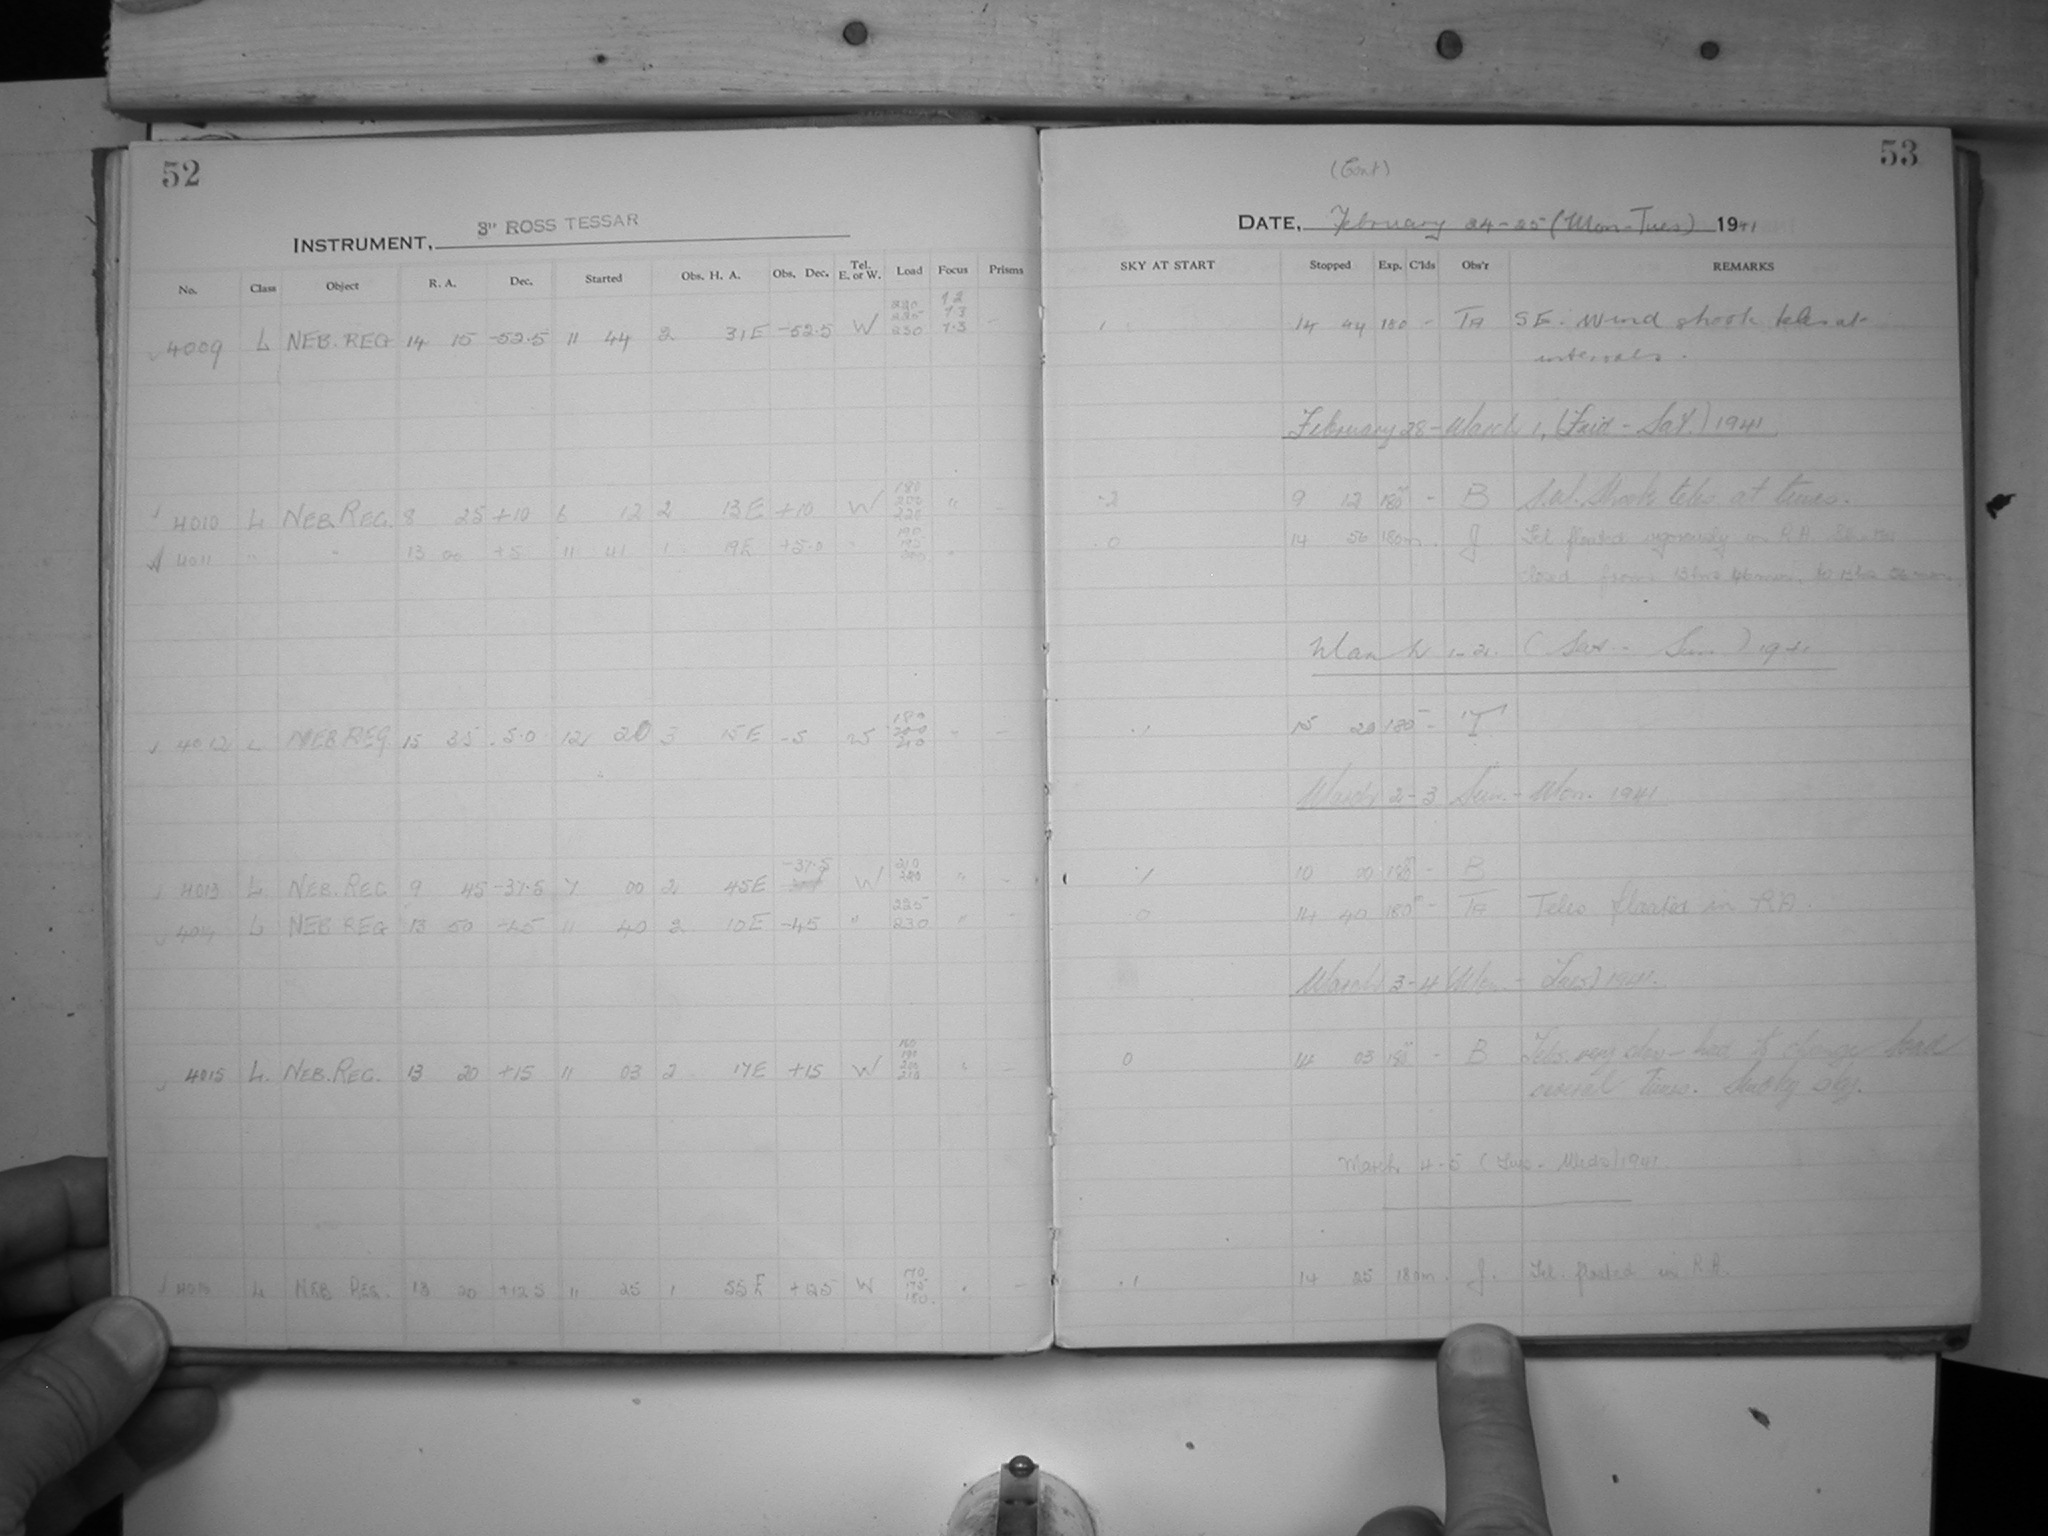 52
INSTRUMENT, 3" ROSS TESSAR
No. Class Object R. A. Dec. Started Obs. H. A. Obs. Dec. Tel. E. or W. Load Focus Prisms
220 7.2
225 7.3
4009 L NEB. REG 14 15 -52.5 11 44 2 31E -52.5 W 230 7.3 -
180
200
4010 L NEB. REG. 8 25 +10 6 12 2 13E +10 W 220 " -
190
195
4011 " " 13 00 +5 11 41 1 19E +5.0 " 200 "
180
200
4012 L NEB REG 15 35 -5.0 12 20 3 15E -5 W 210 " -
-37.5 210
4013 L. NEB. REG 9 45 -37.5 7 00 2 45E W 220 " -
225
4014 L NEB REG 13 50 -45 11 40 2 10E -45 " 230 " -
180
190
200
4015 L. NEB. REG. 13 20 +15 11 03 2 17E +15 W 210 " -
170
175
4016 L NEB REG. 13 20 +12.5 11 25 1 55E W 180. " -
53
(Cont)
DATE, February 24-25 (Mon-Tues) 1941
SKY AT START Stopped Exp. C'lds Obs'r REMARKS
14 44 180 - TA SE. wind shook teles at
intervals.
February 28 - March 1, (Frid - Sat.) 1941
.2 9 12 180 - B S.W. shook teles. at times.
.0 14 56 180m. J Tel. floated vigorously in R.A. Shutter
closed from 13hrs 46mins. to 13hrs 56mins.
March 1-2. (Sat. - Sun.) 1941
.1 15 20 180 - T
March 2-3 Sun. - Mon. 1941
.1 10 00 180 - B
0 14 40 180 - TA Teles floated in RA.
March 3-4 (Mon. - Tues) 1941.
0 14 03 180 - B Teles. very slow - had to change load
several times. Smoky sky.
March 4-5 (Tues. - Weds) 1941
.1 14 25 180m. J. Tel. floated in R.A.